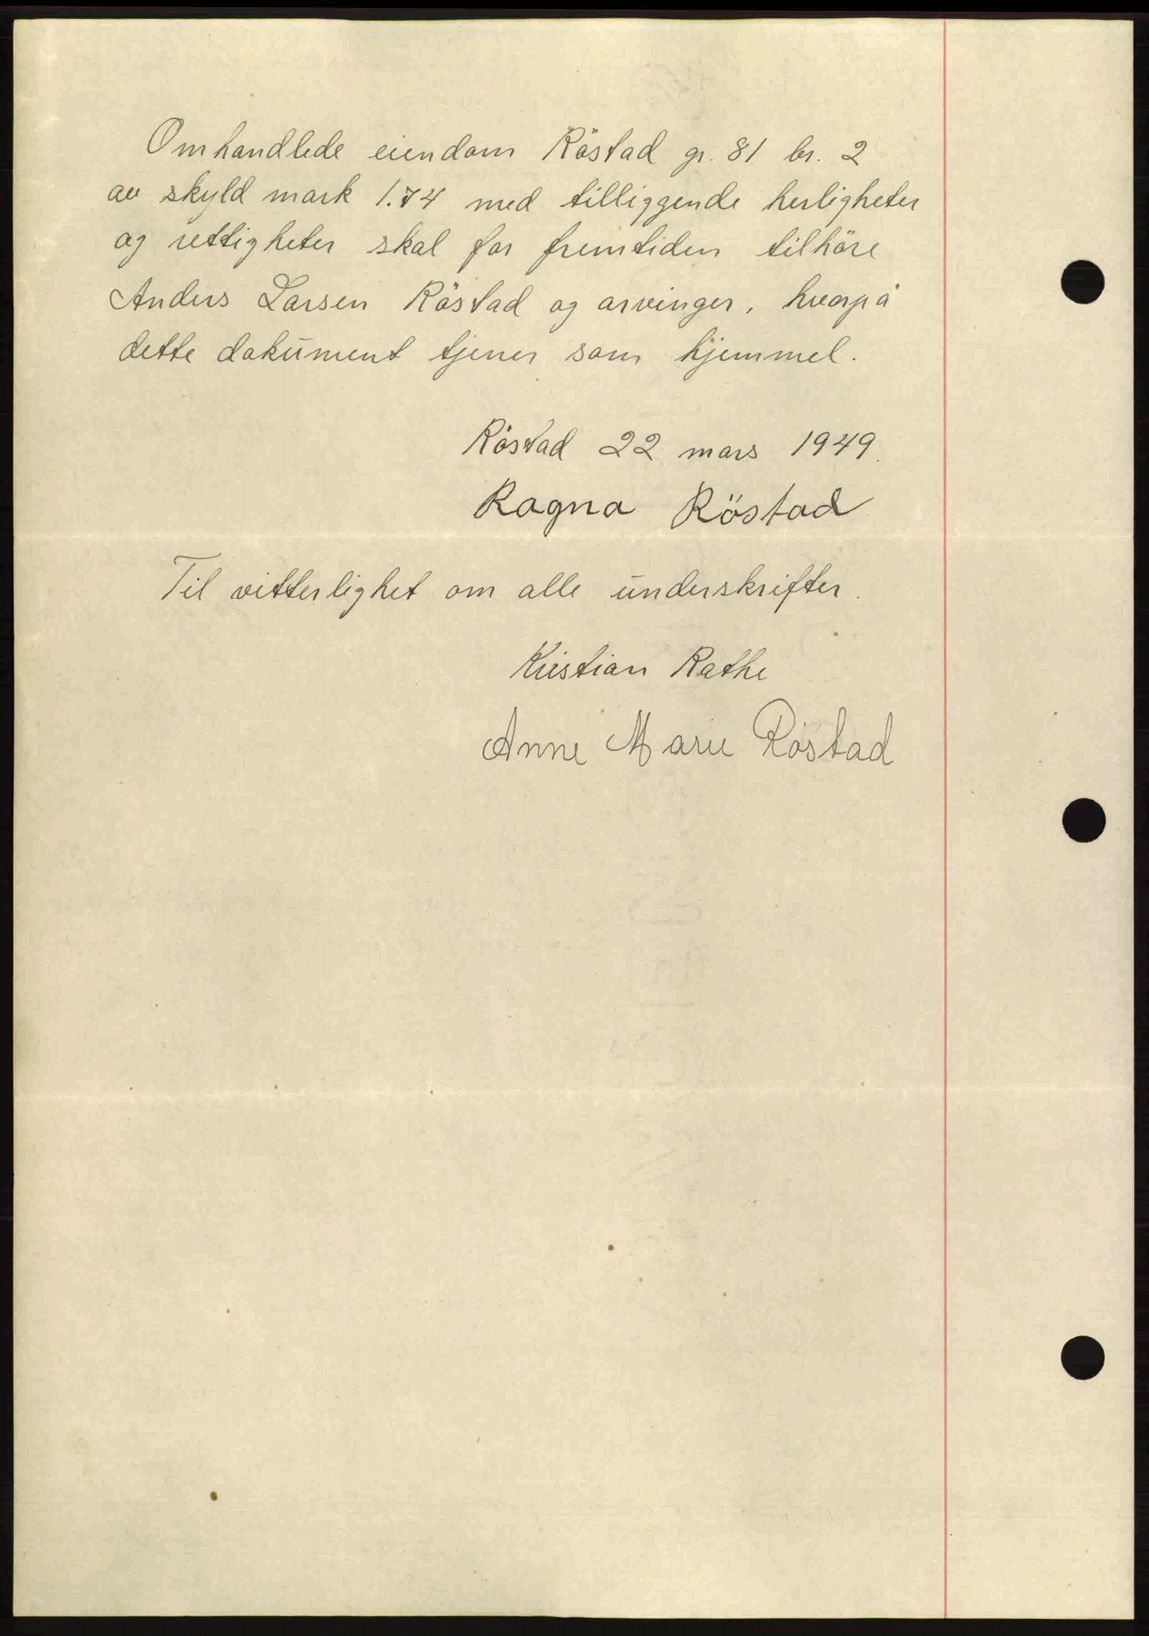 Omhandlede eiendom Röstad gr. 81 br. 2
av skyld mark 1.74 med tilliggende herligheter
og rettigheter skal for fremtiden tilhöre
Anders Larsen Röstad og arvinger, hvorpå
dette dokument tjener som hjemmel.
Röstad 22 mars 1949.
Ragna Röstad
Til vitterlighet om alle underskrifter.
Kristian Rathe
Anne Marie Röstad